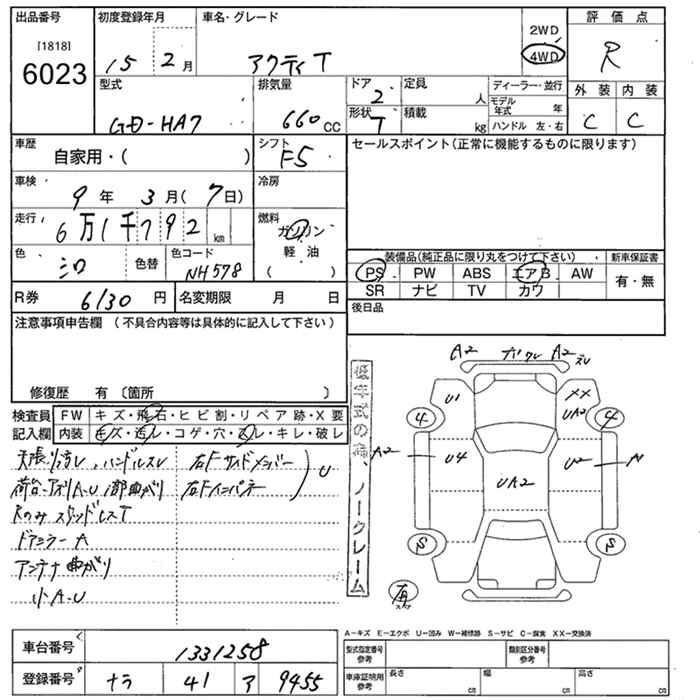 出品番号
[1818]
6023
初度登録年月
15 2月
車名・グレード
アクティT
2WD
4WD
評価点
R
型式
GD-HA7
排気量
660cc
ドア
2
形状
T
定員
人
積載
kg
ディーラー・並行
モデル年式 年
ハンドル 左・右
外装 内装
C C
車歴
自家用・( )
シフト
F5
セールスポイント(正常に機能するものに限ります)
車検
9年 3月(7日)
冷房
走行
6万1千792km
燃料
ガソリン
軽・油
( )
色
シロ
色替
色コード
NH578
装備品(純正品に限り丸をつけて下さい)
新車保証書
PS PW ABS エアB AW
SR ナビ TV カワ
有・無
R券
6130円
名変期限 月 日
後日品
注意事項申告欄(不具合内容等は具体的に記入して下さい)
修復歴 有〔箇所 〕
検査員記入欄
FW キズ・飛石・ヒビ割・リペア跡・X要
内装 キズ・汚レ・コゲ・穴・スレ・キレ・破レ
天張リ汚レ、ハンドルスレ
荷台・アオリA-U
右Fサイドメンバー
右Fインパネー
U
Rのみスタッドレス T
ドアミラーA
アンテナ曲がり
小A-U
低年式の為、ノークレーム
A2 A2
U1
XX
UA2
4 4
A2
U4
UA2
U2
S S
有
スペア
車台番号
1331258
登録番号
ナラ 41 ア 9455
A-キズ E-エクボ U-凹み W-補修跡 S-サビ C-腐食 XX-交換済
型式指定番号
参考
類別区分番号
参考
車庫証明用
参考
長さ cm
幅 cm
高さ cm